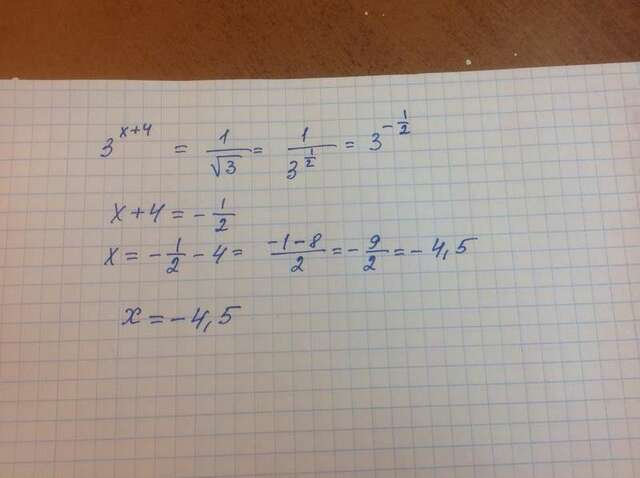 3^{x+4} = \frac{1}{\sqrt{3}} = \frac{1}{3^{\frac{1}{2}}} = 3^{-\frac{1}{2}}
x+4 = -\frac{1}{2}
x = -\frac{1}{2} - 4 = \frac{-1-8}{2} = -\frac{9}{2} = -4,5
x = -4,5